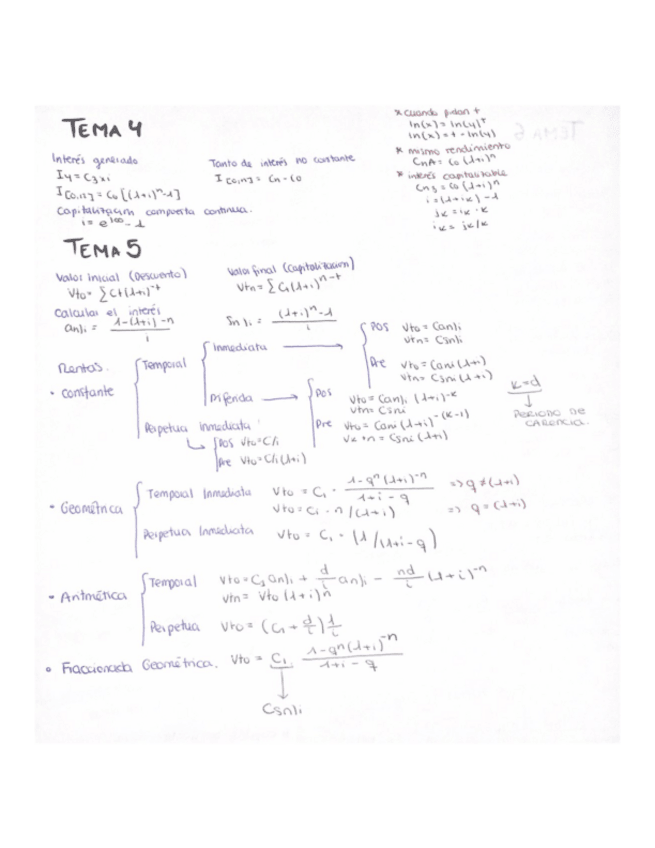 TEMA 4
Interés generado
I4 = C3 x i
I[0,n] = C0 [(1+i)^n - 1]
Capitalización compuesta continua.
i = e^J∞ - 1
Tanto de interés no constante
I[0,n] = Cn - C0
* cuando pidan t
ln(x) = ln(y)^t
ln(x) = t · ln(y)
* mismo rendimiento
CnA = C0 (1+i)^n
* interés capitalizable
Cn5 = C0 (1+i)^n
i = (1+ik) - 1
jk = ik · k
ik = jk/k
TEMA 5
Valor inicial (Descuento)
Vto = ∑ Ct(1+i)^-t
Valor final (Capitalización)
Vtn = ∑ Ct(1+i)^n-t
Calcular el interés
an⌉i = 1-(1+i)-n / i
Sn⌉i = (1+i)^n - 1 / i
Rentas.
• constante
Temporal
Inmediata
Pos Vto = Can⌉i
Vtn = Csn⌉i
Pre Vto = Cani(1+i)
Vtn = Csni(1+i)
Diferida
Pos Vto = Can⌉i (1+i)^-k
Vtn = Csni
Pre Vto = Cani (1+i)^-(k-1)
Vk+n = Csni (1+i)
k = d
PERIODO DE
CARENCIA.
Perpetua Inmediata
Pos Vto = C/i
Pre Vto = C/i (1+i)
• Geométrica
Temporal Inmediata Vto = C1 · 1-q^n(1+i)^-n / 1+i-q => q ≠ (1+i)
Vto = C1 · n/(1+i) => q = (1+i)
Perpetua Inmediata Vto = C1 · (1/1+i-q)
• Aritmética
Temporal Vto = C1 an⌉i + d/i an⌉i - nd/i (1+i)^-n
Vtn = Vto (1+i)^n
Perpetua Vto = (C1 + d/i) 1/i
• Fraccionada Geométrica. Vto = C1 · 1-q^n(1+i)^-n / 1+i-q
Csn⌉i